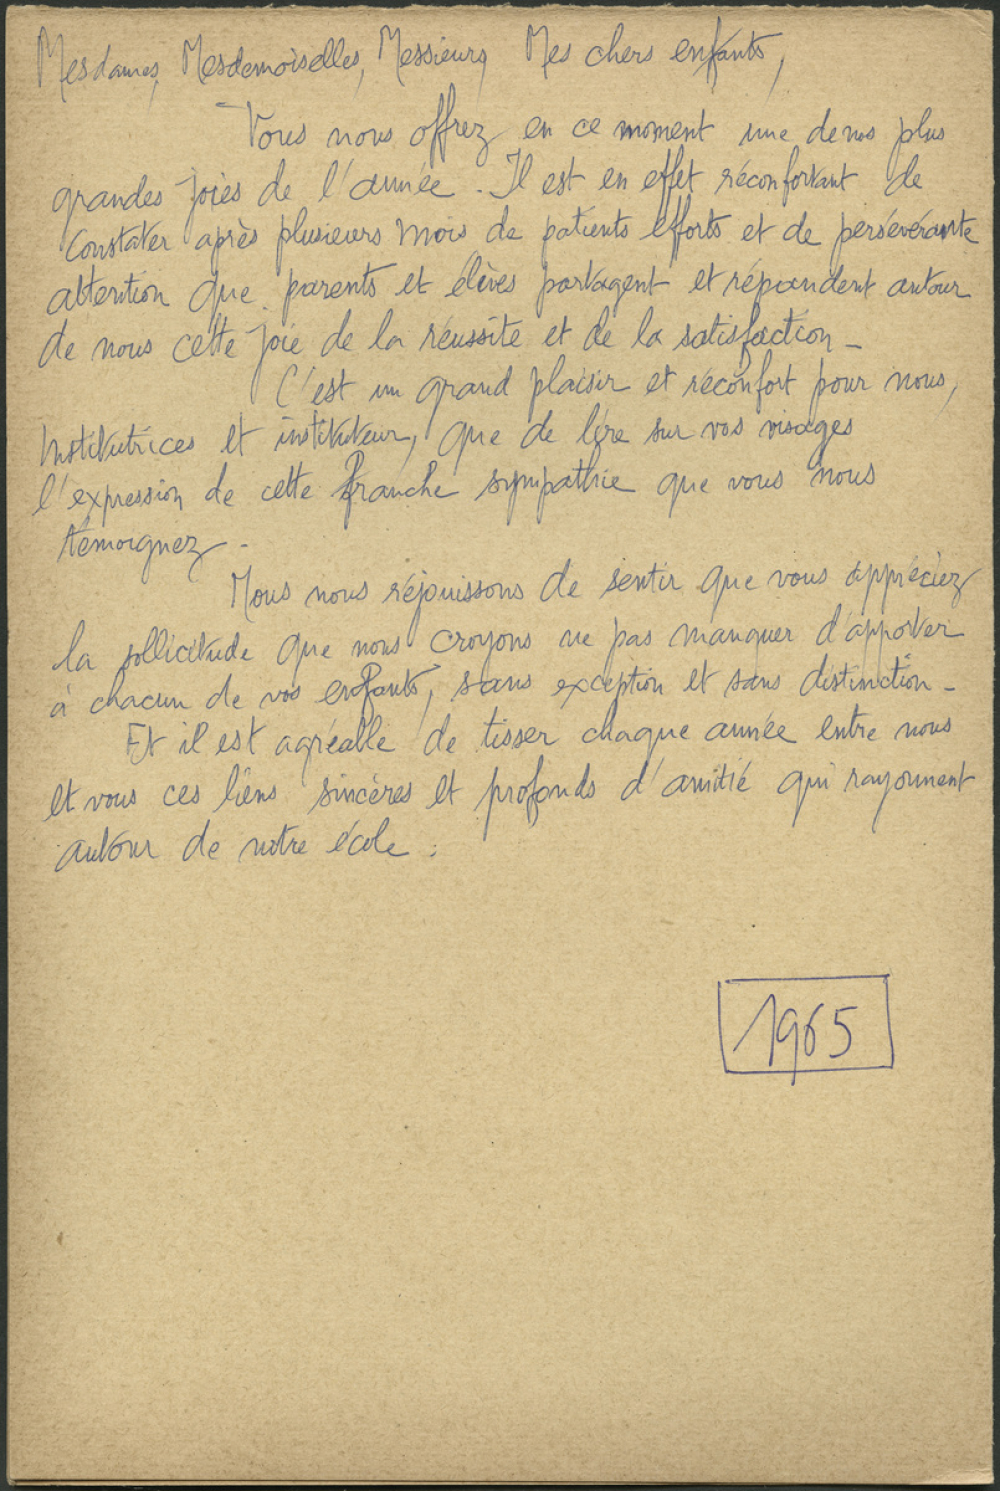 Mesdames, Mesdemoiselles, Messieurs, Mes chers enfants,
Vous nous offrez en ce moment une de nos plus
grandes joies de l'année. Il est en effet réconfortant de
constater après plusieurs mois de patients efforts et de persévérante
attention que parents et élèves partagent et répandent autour
de nous cette joie de la réussite et de la satisfaction -
C'est un grand plaisir et réconfort pour nous,
Institutrices et instituteur, que de lire sur vos visages
l'expression de cette franche sympathie que vous nous
témoignez -
Nous nous réjouissons de sentir que vous appréciez
la sollicitude que nous croyons ne pas manquer d'apporter
à chacun de vos enfants, sans exception et sans distinction -
Et il est agréable de tisser chaque année entre nous
et vous ces liens sincères et profonds d'amitié qui rayonnent
autour de notre école.
1965